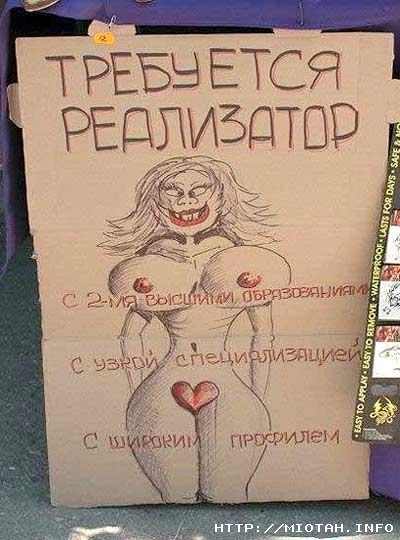 2
ТРЕБУЕТСЯ
РЕАЛИЗАТОР
С 2-МЯ ВЫСШИМИ ОБРАЗОВАНИЯМИ
С УЗКОЙ СПЕЦИАЛИЗАЦИЕЙ
С ШИРОКИМ ПРОФИЛЕМ
• EASY TO APPLAY • EASY TO REMOVE • WATERPROOF • LASTS FOR DAYS • SAFE &
HTTP://MIOTAH.INFO